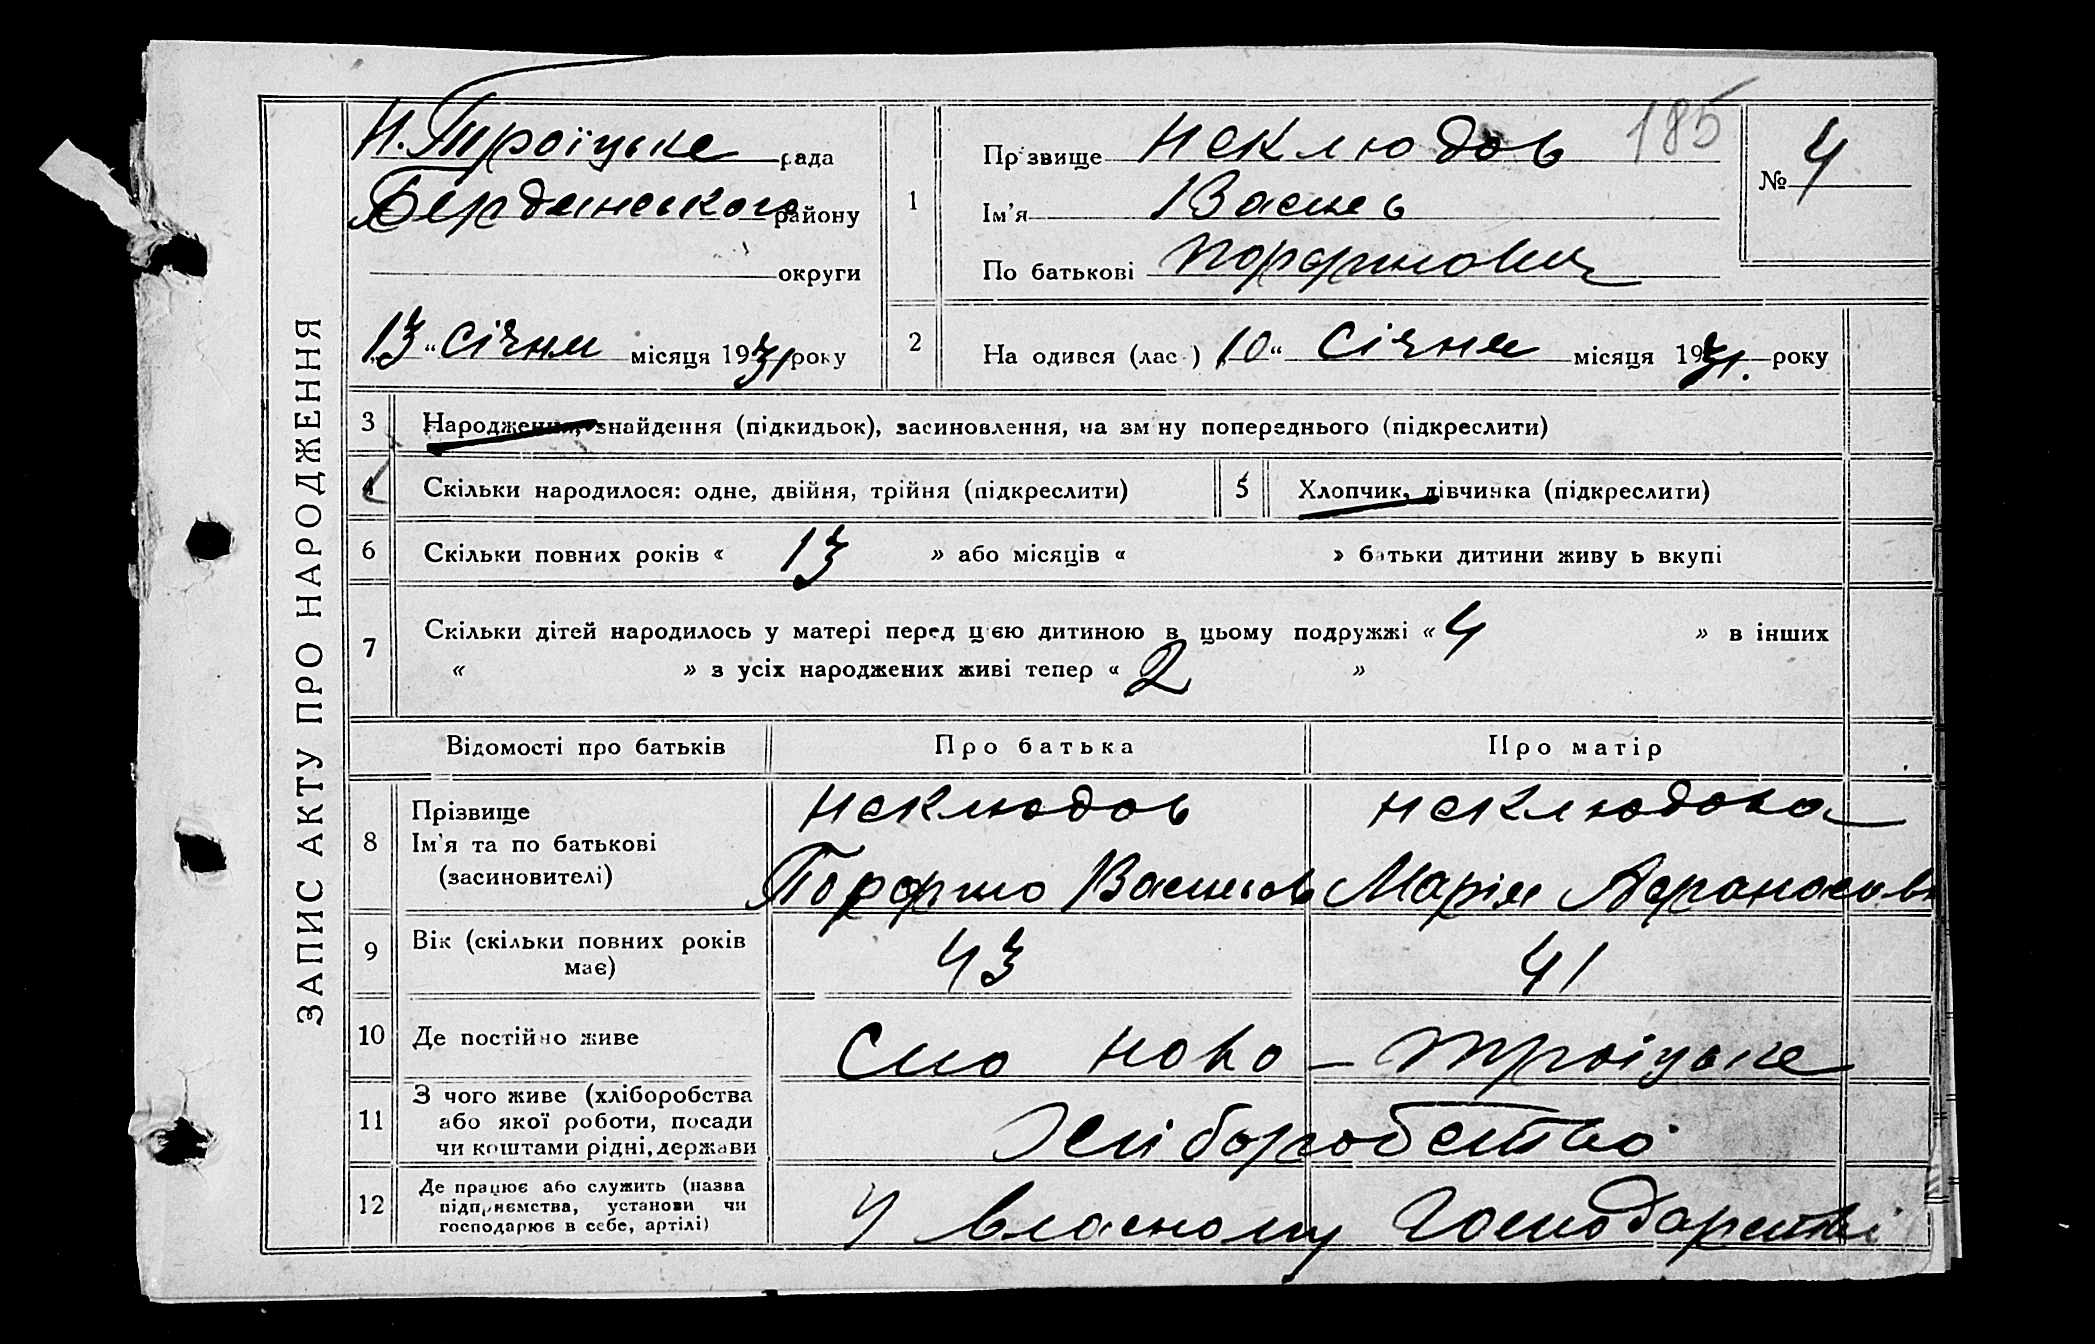 ЗАПИС АКТУ ПРО НАРОДЖЕННЯ
Н. Троїцьке рада
Бердянського району
округи
"13" січня місяця 1931 року
185
1 Прізвище Неклюдов
Ім'я Василь
По батькові Порфирович
№ 4
2 Народився (лась) "10" Січня місяця 1931. року
3 Народження, знайдення (підкидьок), засиновлення, на зміну попереднього (підкреслити)
4 Скільки народилося: одне, двійня, трійня (підкреслити)
5 Хлопчик, дівчинка (підкреслити)
6 Скільки повних років « 13 » або місяців « » батьки дитини живуть вкупі
7 Скільки дітей народилось у матері перед цією дитиною в цьому подружжі « 4 » в інших
« » з усіх народжених живі тепер « 2 »
Відомості про батьків Про батька Про матір
8 Прізвище
Ім'я та по батькові
(засиновителі)
Неклюдов
Неклюдова
Марія
9 Вік (скільки повних років
має)
43
41
10 Де постійно живе
Село Ново-Троїцьке
11 З чого живе (хліборобства
або якої роботи, посади
чи коштами рідні, держави
Хліборобство
12 Де працює або служить (назва
підприємства, установи чи
господарює в себе, артілі)
У власному господарстві